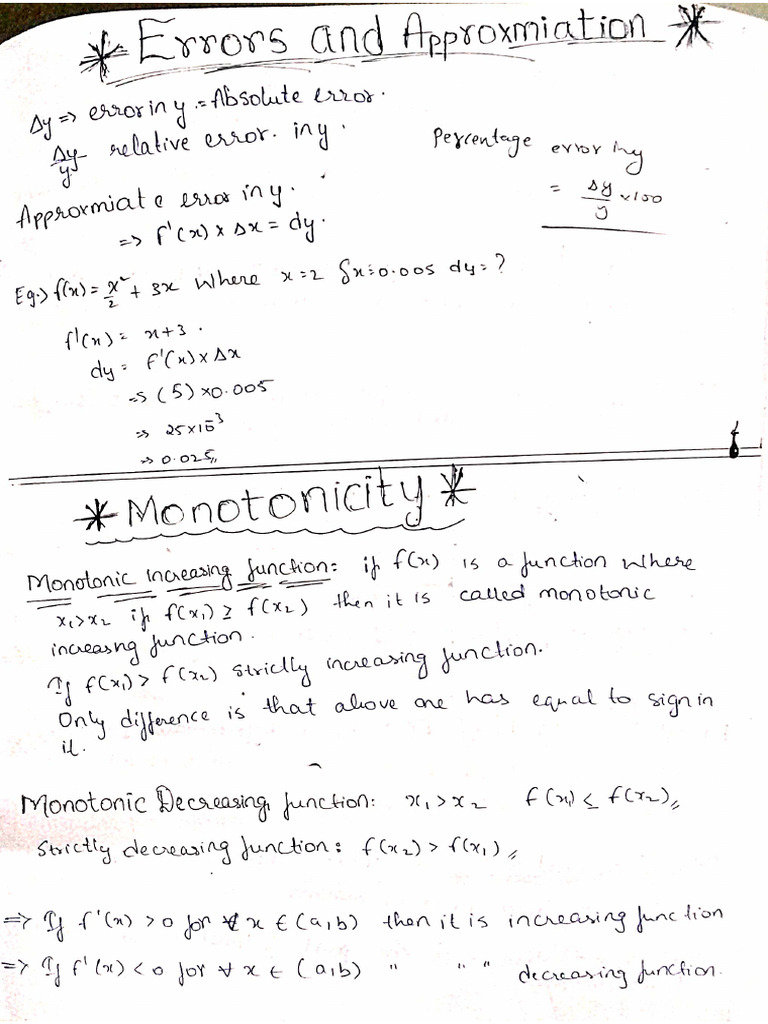 * Errors and Approxmiation *
Δy => error in y = Absolute error.
Δy/y relative error. in y.
Percentage error in y
= Δy/y x100
Approxmiate error in y.
=> f'(x) x Δx = dy.
Eg:> f(x) = x²/2 + 3x where x=2 δx=0.005 dy=?
f'(x) = x+3.
dy = f'(x) x Δx
=> (5) x0.005
=> 25x10⁻³
=> 0.025,,
* Monotonicity *
Monotonic increasing function: if f(x) is a function where
x₁>x₂ if f(x₁) ≥ f(x₂) then it is called monotonic
increasng function.
If f(x₁) > f(x₂) strictly increasing function.
Only difference is that above one has equal to sign in
it.
Monotonic Decreasing function: x₁>x₂ f(x₁) ≤ f(x₂),,
Strictly decreasing function: f(x₂) > f(x₁),,
=> If f'(x) >0 for ∀ x ∈ (a,b) then it is increasing function
=> If f'(x) <0 for ∀ x ∈ (a,b) " " " decreasing function.